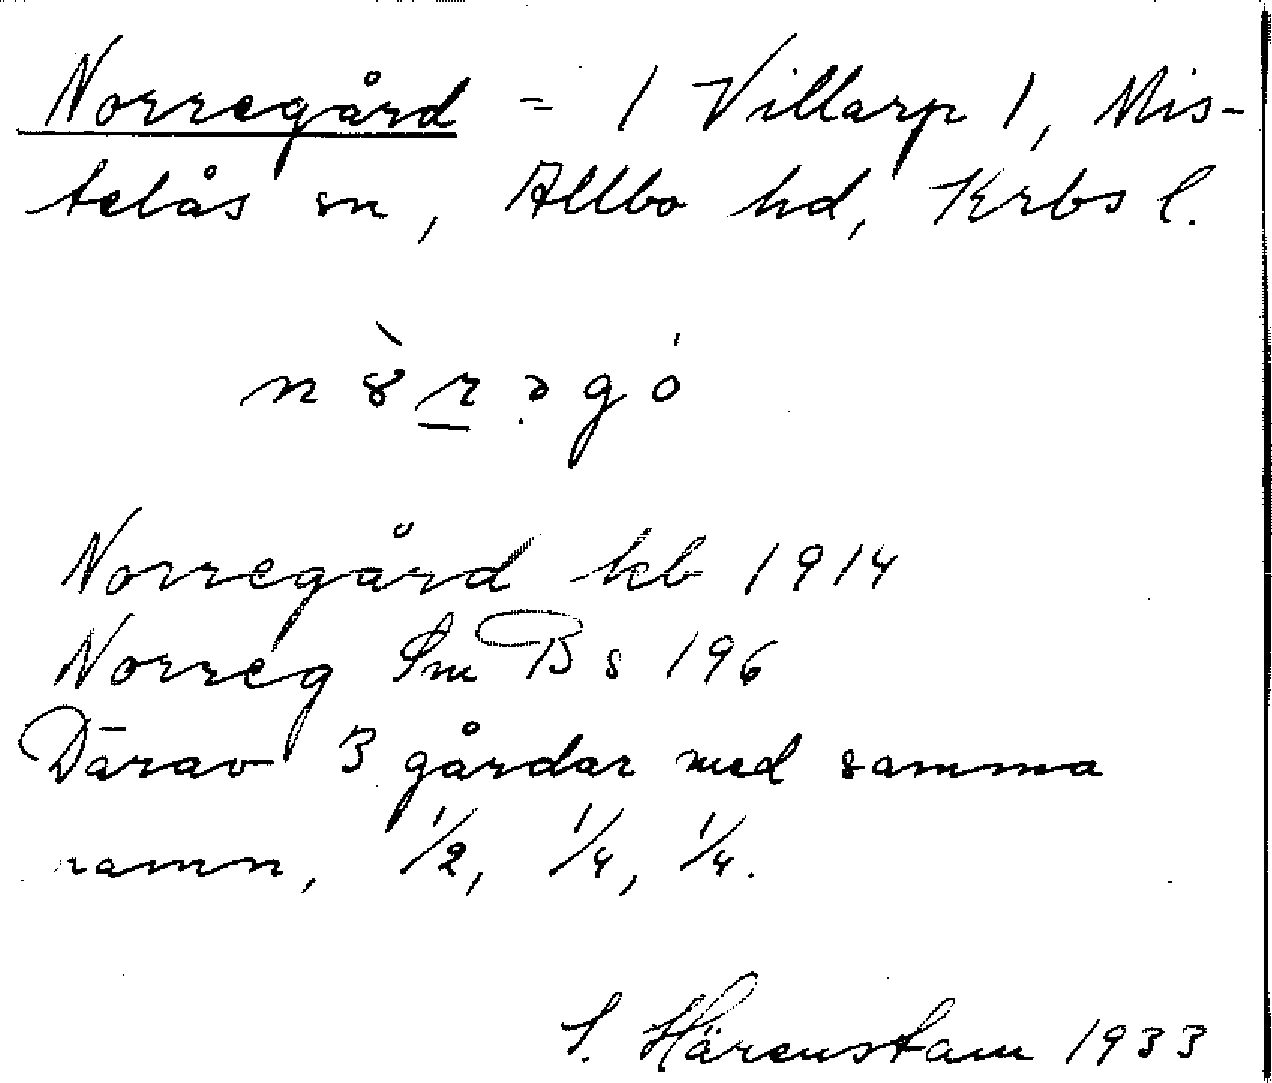 Norregård = / Villarp 1, Mis-
telås sn, Allbo hd, Krbs l.
Norregård kb 1914
Norreg Sm B s 196
Därav 3 gårdar med samma
namn, 1/2, 1/4, 1/4.
S. Härenstam 1933